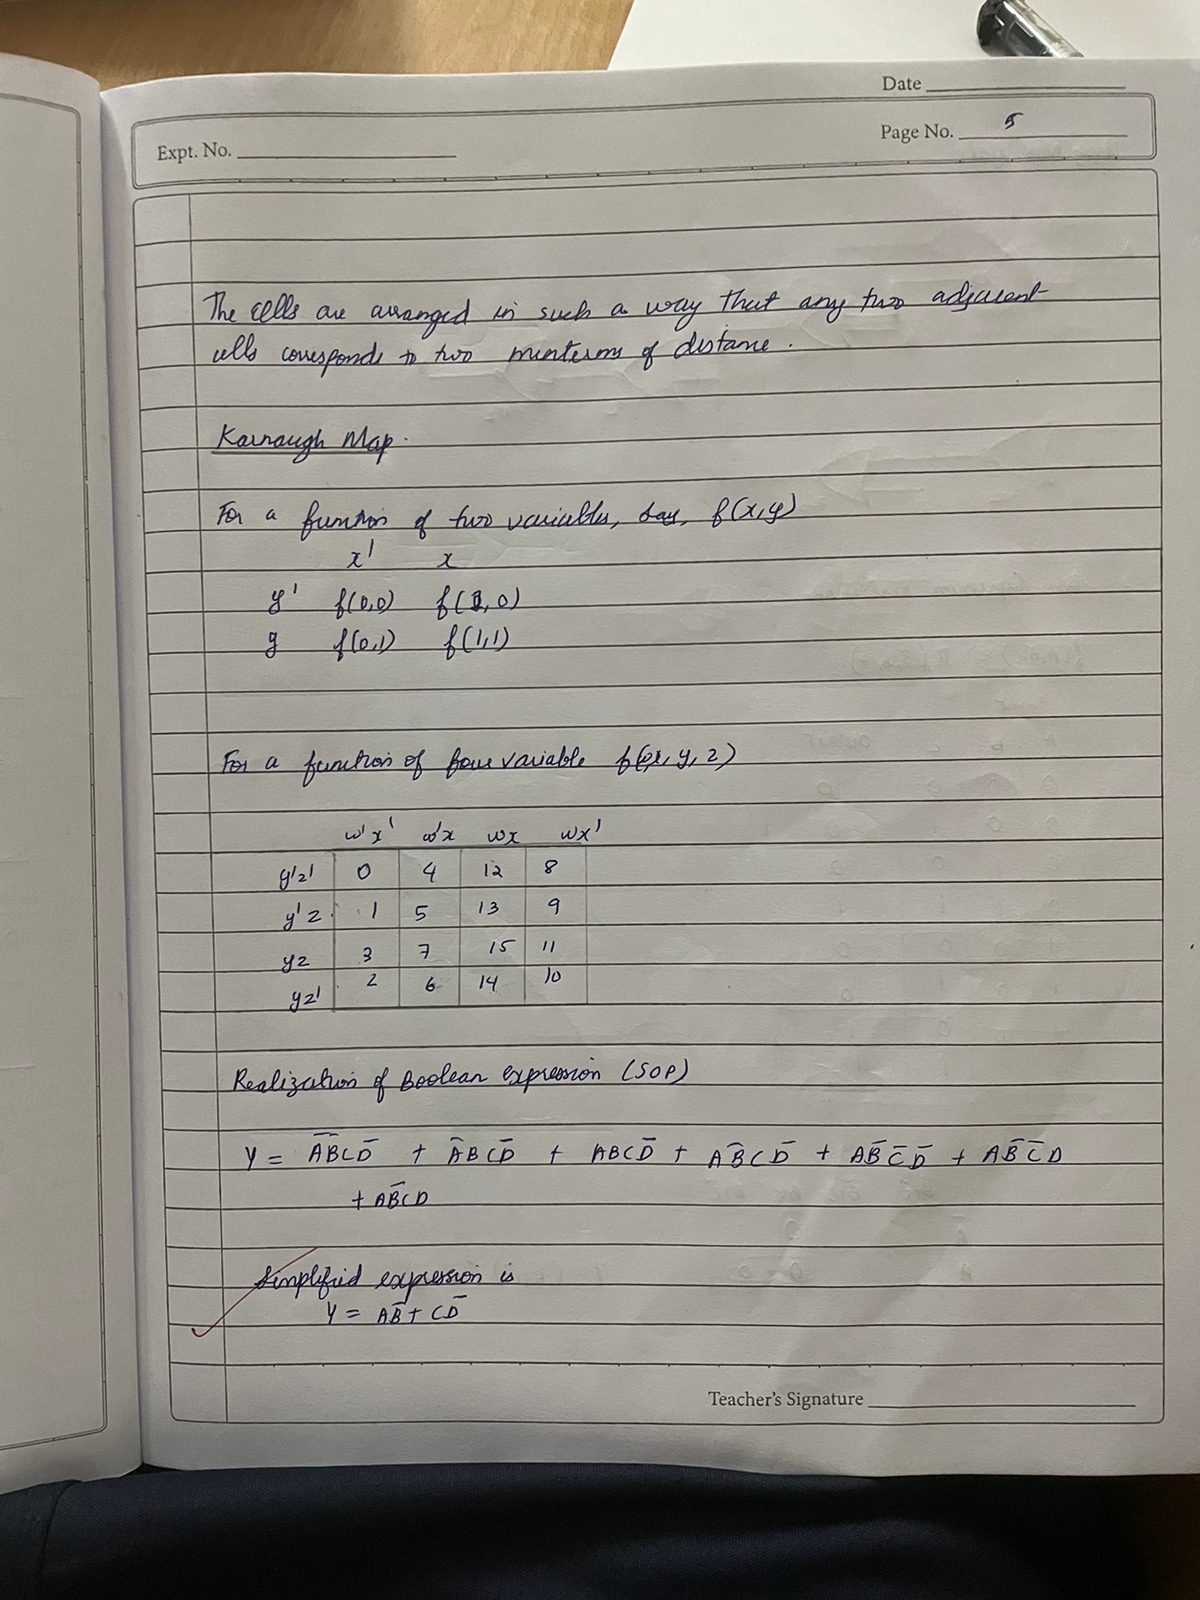 Date
Page No. 5
Expt. No.
The cells are arranged in such a way that any two adjacent
cells corresponds to two minterms of distance.
Karnaugh Map.
For a function of two variables, say, f(x,y)
x' x
y' f(0,0) f(1,0)
y f(0,1) f(1,1)
For a function of four variable f(x, y, z)
w'x' w'x wx wx'
y'z' 0 4 12 8
y'z 1 5 13 9
yz 3 7 15 11
yz' 2 6 14 10
Realization of Boolean expression (SOP)
Y = A̅B̅CD̅ + A̅BCD̅ + ABCD̅ + AB̅CD̅ + AB̅C̅D̅ + AB̅C̅D
+ AB̅CD
Simplified expression is
Y = AB̅ + CD̅
Teacher's Signature